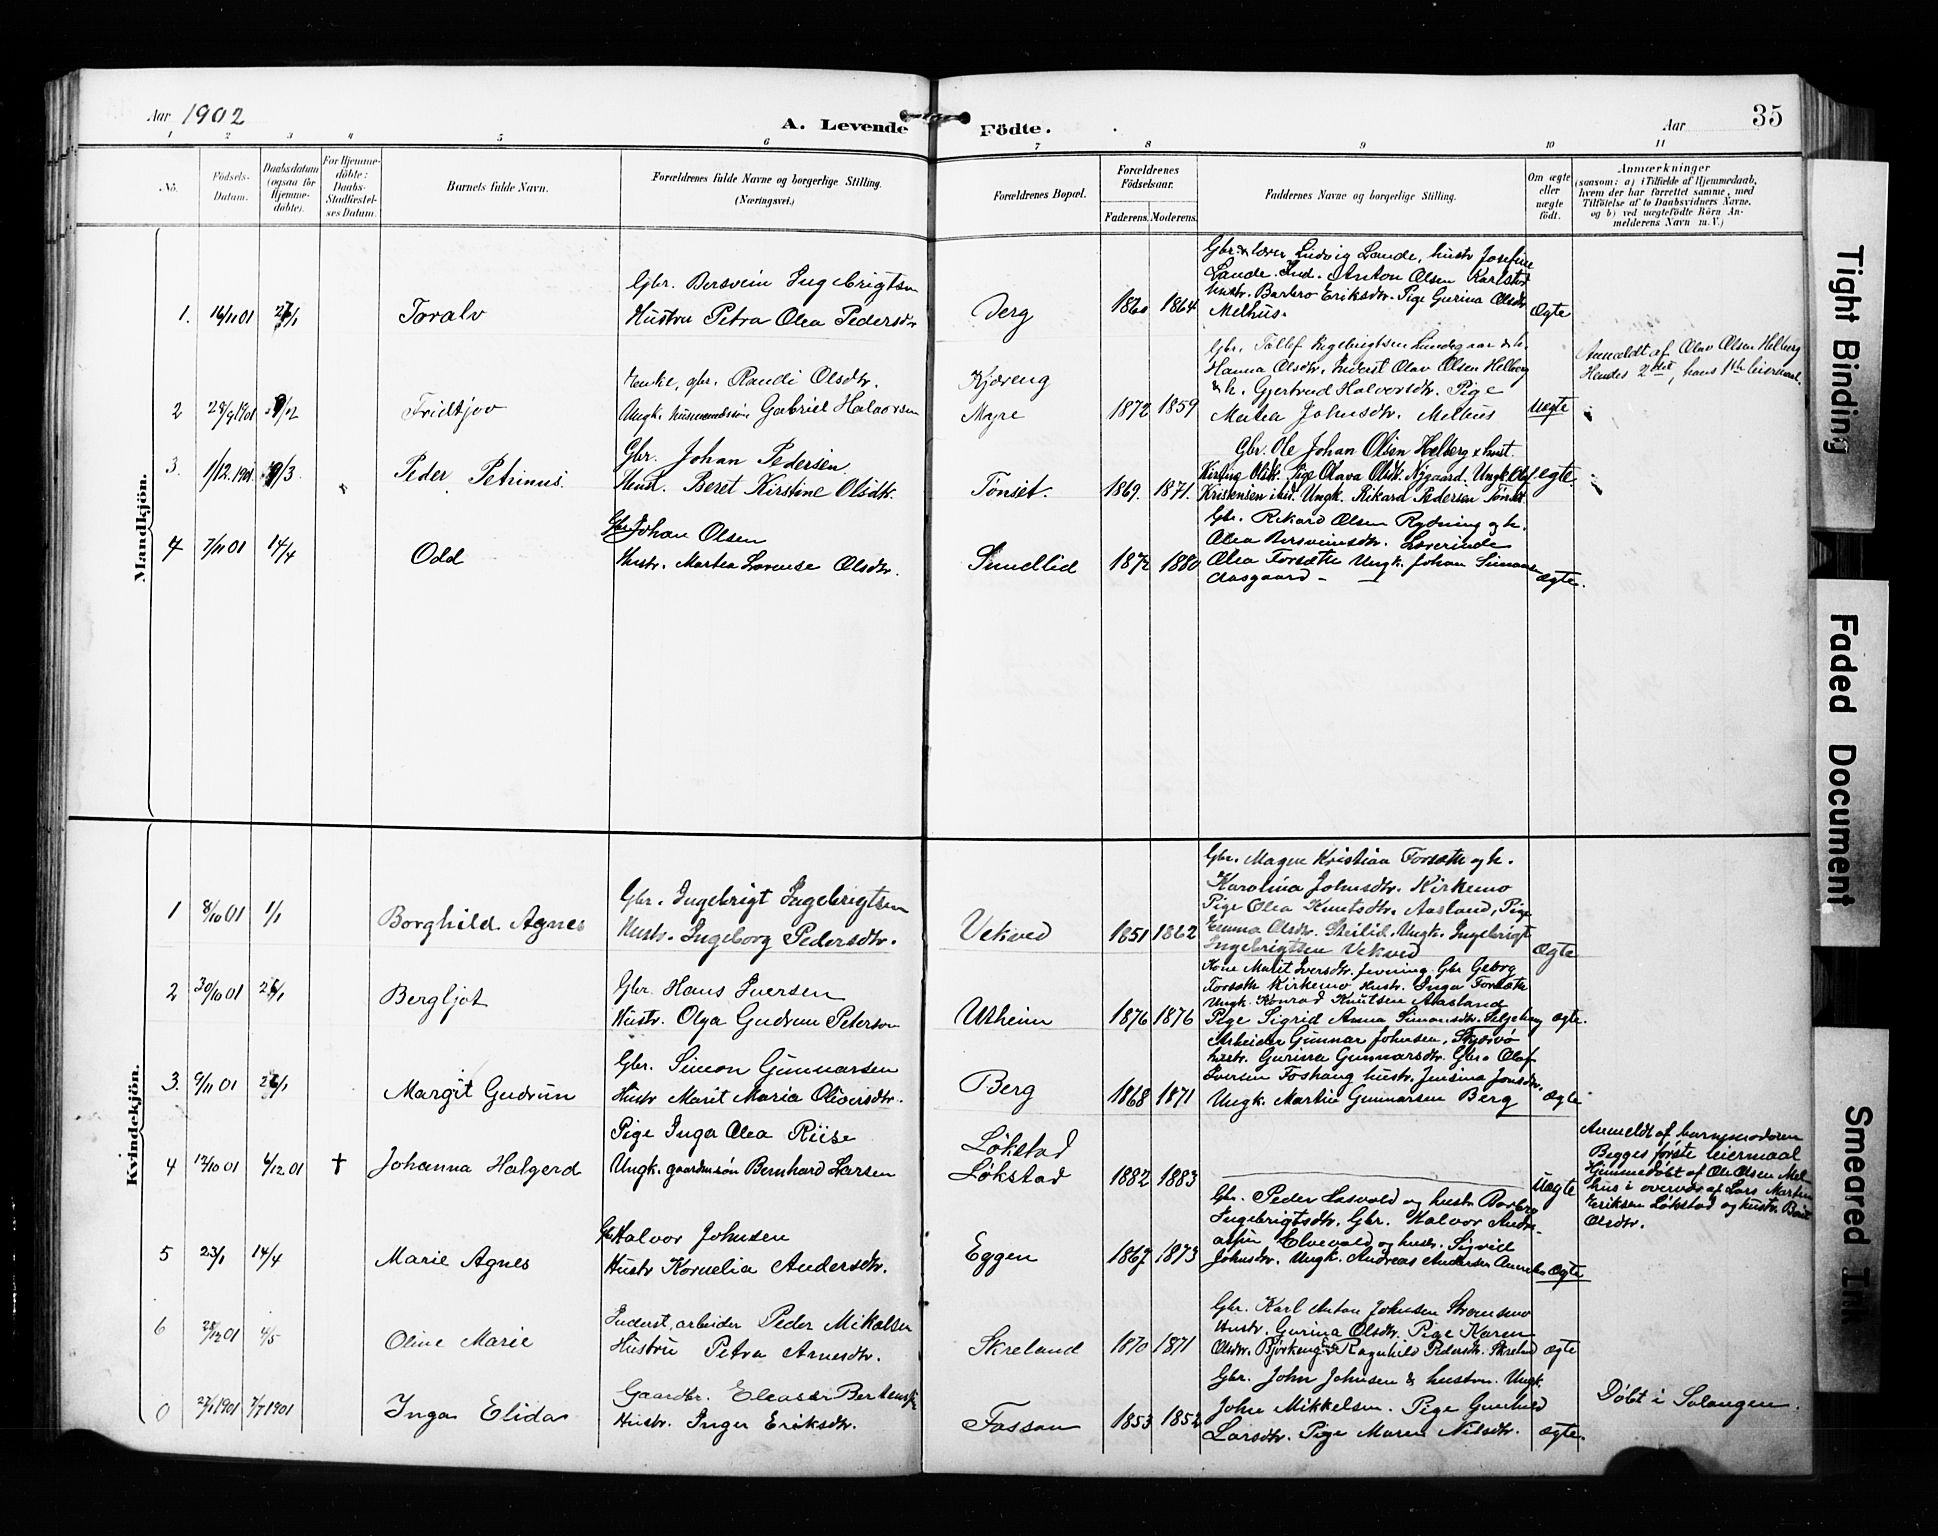 Aar 1902
A. Levende Födte.
Aar
35
1 2 3 4 5 6 7 8 9 10 11
No.
Födsels-Datum.
Daabsdatum (ogsaa for Hjemmedöbte).
For Hjemmedöbte: Daabs-Stadfæstelses Datum.
Barnets fulde Navn.
Forældrenes fulde Navne og borgerlige Stilling.
(Næringsvei.)
Forældrenes Bopæl.
Forældrenes Födselsaar.
Faderens. Moderens.
Faddernes Navne og borgerlige Stilling.
Om ægte eller uægte födt.
Anmærkninger
(saasom: a) i Tilfælde af Hjemmedaab,
hvem der har forrettet samme, med
Tilföielse af to Daabsvidners Navne,
og b) ved uægtefödte Börn An-
melderens Navn m. V.)
Mandkjön.
Gbr. Bersvein Ingebrigtsen
1. 16/11 01 Toralv Hustru Petra Olea Pedersdtr Berg 1860 1864 Ægte
Gbr. & lærer Ludvig Lande, hustr Josefine
Lande. Ind. Anton Olsen Karlstad
Hustr. Barbro Eriksdtr. Pige Gurina Olsdtr
Melhus.
Enke, gbr. Randi Olsdtr. Kjæreng
2 29/9 1901 Fridtjov Ungk. husmandssøn Gabriel Halvorsen Myre 1872 1859 Uægte
Hanna Olsdtr. Inderst Olav Olsen Helberg
& h. Gjertrud Halvorsdtr. Pige
Matea Johnsdtr. Melhus
Anmeldt af Olav Olsen Helberg
Hendes 2det, hans 1ste leiermaal.
Gbr. Johan Pedersen
3. 1/12.1901 Peder Petrinus. Hust. Beret Kirstine Olsdtr. Tønset. 1869. 1871. ægte.
Gbr. Ole Johan Olsen Helberg & hust.
Kirstine Olsdtr. Pige Olava Olsdtr. Nygaard. Ungk. Olaf
Kristensen ibid. Ungk. Rikard Pedersen Tønset
Gbr Johan Olsen
4 7/11 01 14/4 Odd Hustr. Martea Lovense Olsdtr. Smedlid 1872 1880 ægte.
Gbr. Rikard Olsen Rydning og h.
Olea Bersveinsdtr. Lærerinde
Olea Forsæth Ungk. Johan Simonsen
Aasgaard
Kvindekjön.
Gbr. Ingebrigt Ingebrigtsen
1 8/10 01 1/1 Borghild Agnes Hustr. Ingeborg Pedersdtr. Vekved 1851 1862 Ægte
Gbr. Magne Kristian Forsæth og h.
Karolina Johnsdtr. Kirkemo
Pige Olea Knutsdtr. Aasland, Pige
Emma Olsdtr. Ungk. Ingebrigt
Ingebrigtsen Vekved
Gbr. Hans Iversen
2 30/10 01 26/1 Bergljot Hustr. Olga Gudrun Peterson Utheim 1876 1876 ægte.
Kone Marit Iversdtr. Jevning. Gbr Georg
Forsæth Kirkemo Hustr. Inga Forsæth
Ungk. Konrad Knutsen Aasland
Pige Sigrid Anna Simonsdtr. Seljehaug
Gbr. Simon Gunnarsen
3. 9/11 01 26/1 Margit Gudrun Hustr Marit Maria Oliversdtr. Berg 1868 1871 ægte
Arbeider Gunnar Johnsen,
hustr. Gurina Gunnarsdtr. Gbr. Olaf
Iversen Foshaug hustr. Jensina Jonsdtr.
Ungk. Martin Gunnarsen Berg
Pige Inga Olea Riise Løkstad
4 12/10 01 6/12 01 † Johanna Halgerd Ungk. gaardmsøn Bernhard Larsen Løkstad 1882 1883 Uægte
Anmeldt af barnemoderen
Begges første leiermaal
Hjemmedøbt af Ole Olsen Mel-
hus i overvær af Lars Martin
Eriksen Løkstad og hustr. Berit
Olsdtr.
Gbr Halvor Johnsen
5 23/1 14/4 Marie Agnes Hustr Kornelia Andersdtr. Eggen 1867 1873 ægte
Gbr. Peder Hasvold og hustr Barbro
Ingebrigtsdtr. Gbr. Halvor Andre-
assen Elvevold og hustr. Sigrid
Johnsdtr. Ungk. Andreas Andersen
Inderst, arbeider Peder Mikalsen
6 28/12 01 4/5 Oline Marie Hustru Petra Arnesdtr. Skreland 1870 1871 ægte
Gbr. Karl Anton Johnsen Strømsmo
Hustr. Gurina Olsdtr. Pige Karen
Olsdtr. Bjørkeng Ragnhild Pedersdtr. Skreland
Gaardbr. Eleaser Berteussen
0 27/1 1901 7/7 1901 Inga Elida Hustr. Inger Eriksdtr. Fossan 1853 1852 ægte.
Gbr. John Johnsen & hustru. Ungk
John Mikkelsen. Pige Gunhild
Larsdtr. Pige Maren Nilsdtr.
Døbt i Salangen.
Tight Binding
Faded Document
Smeared Ink